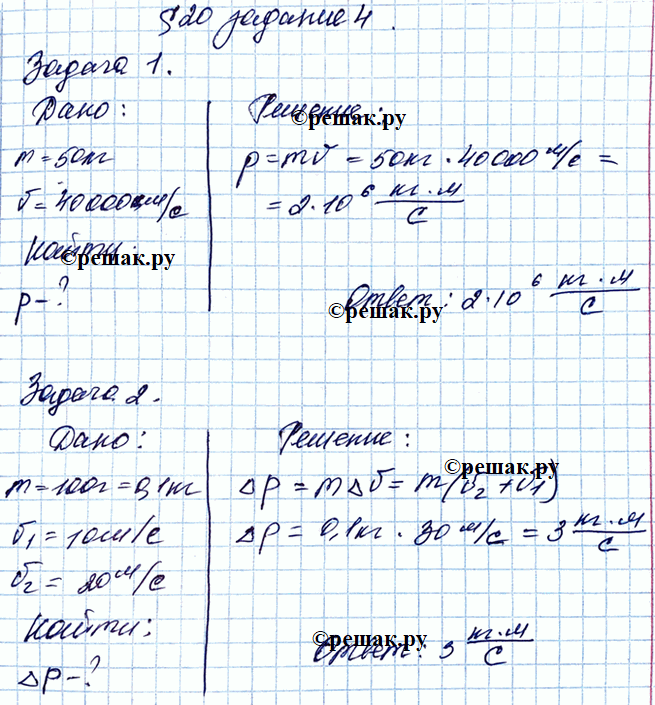 §20 задание 4.
Задача 1.
Дано:
m = 50кг
v = 40000м/с
Найти:
p - ?
Решение:
p = mv = 50кг · 40000 м/с =
= 2·10⁶ кг·м/с
Ответ: 2·10⁶ кг·м/с
©решак.ру
©решак.ру
©решак.ру
Задача 2.
Дано:
m = 100г = 0,1кг
v₁ = 10м/с
v₂ = 20м/с
Найти:
Δp - ?
Решение:
Δp = mΔv = m(v₂ + v₁)
Δp = 0,1кг · 30 м/с = 3 кг·м/с
Ответ: 3 кг·м/с
©решак.ру
©решак.ру